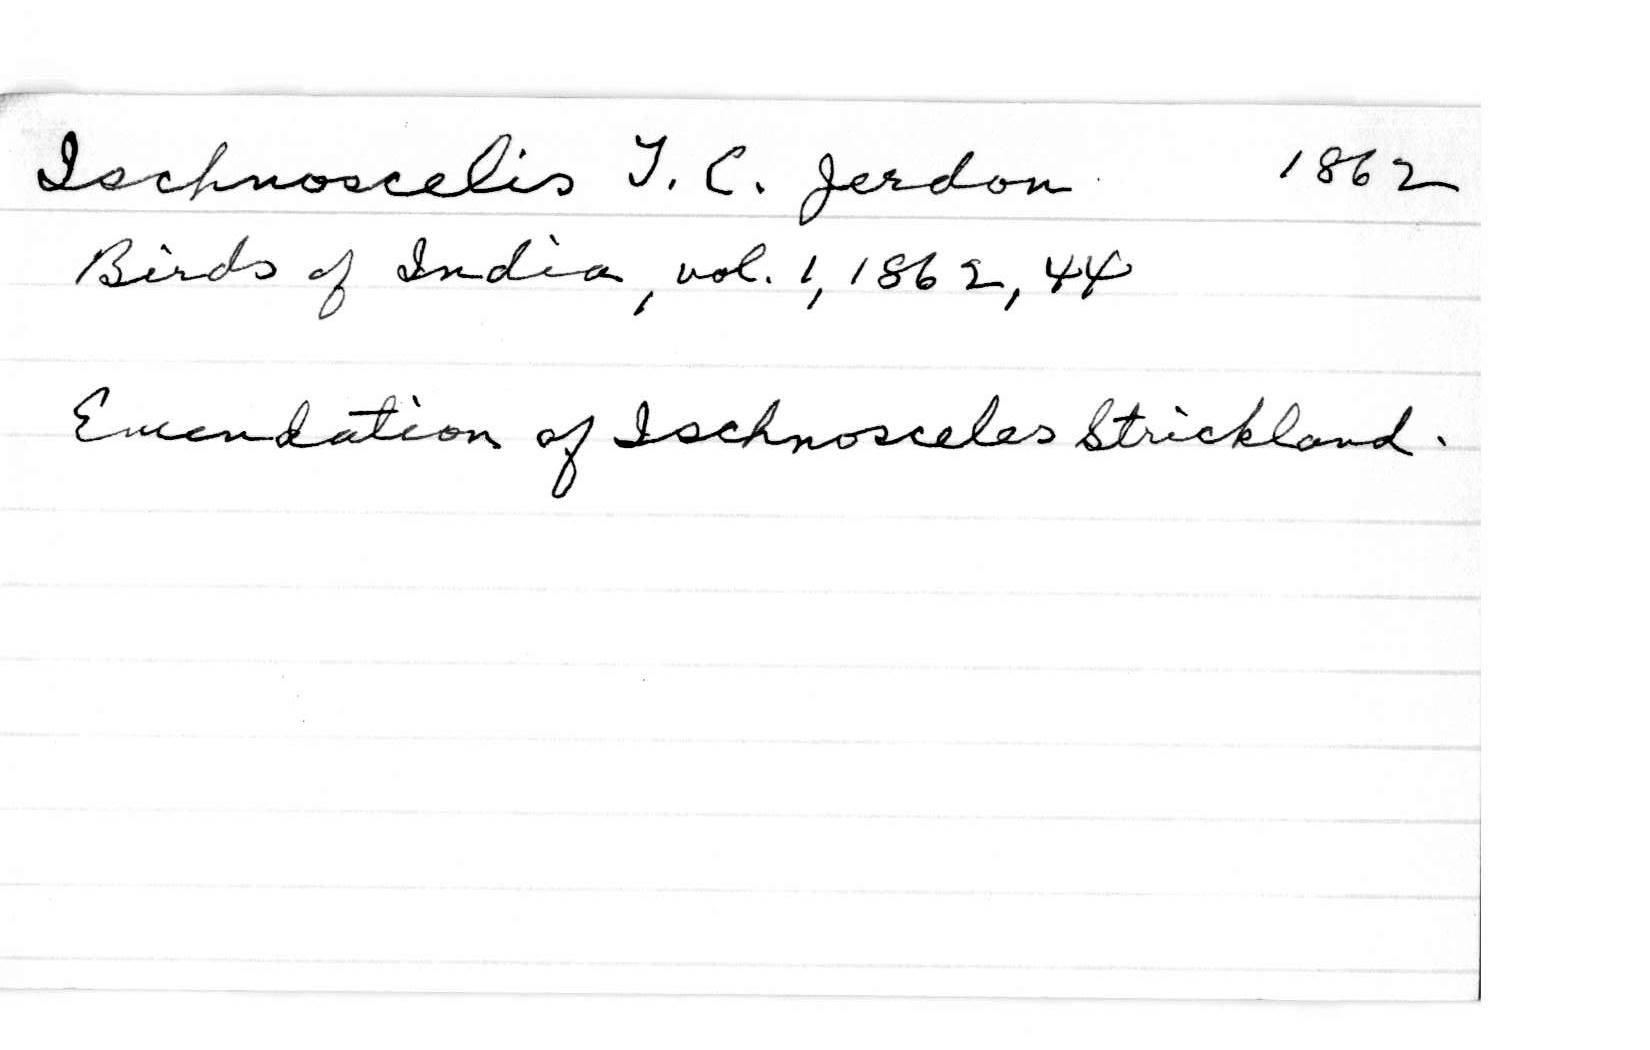 Ischnoscelis T. C. Jerdon 1862
Birds of India, vol. 1, 1862, 44
Emendation of Ischnosceles Strickland.